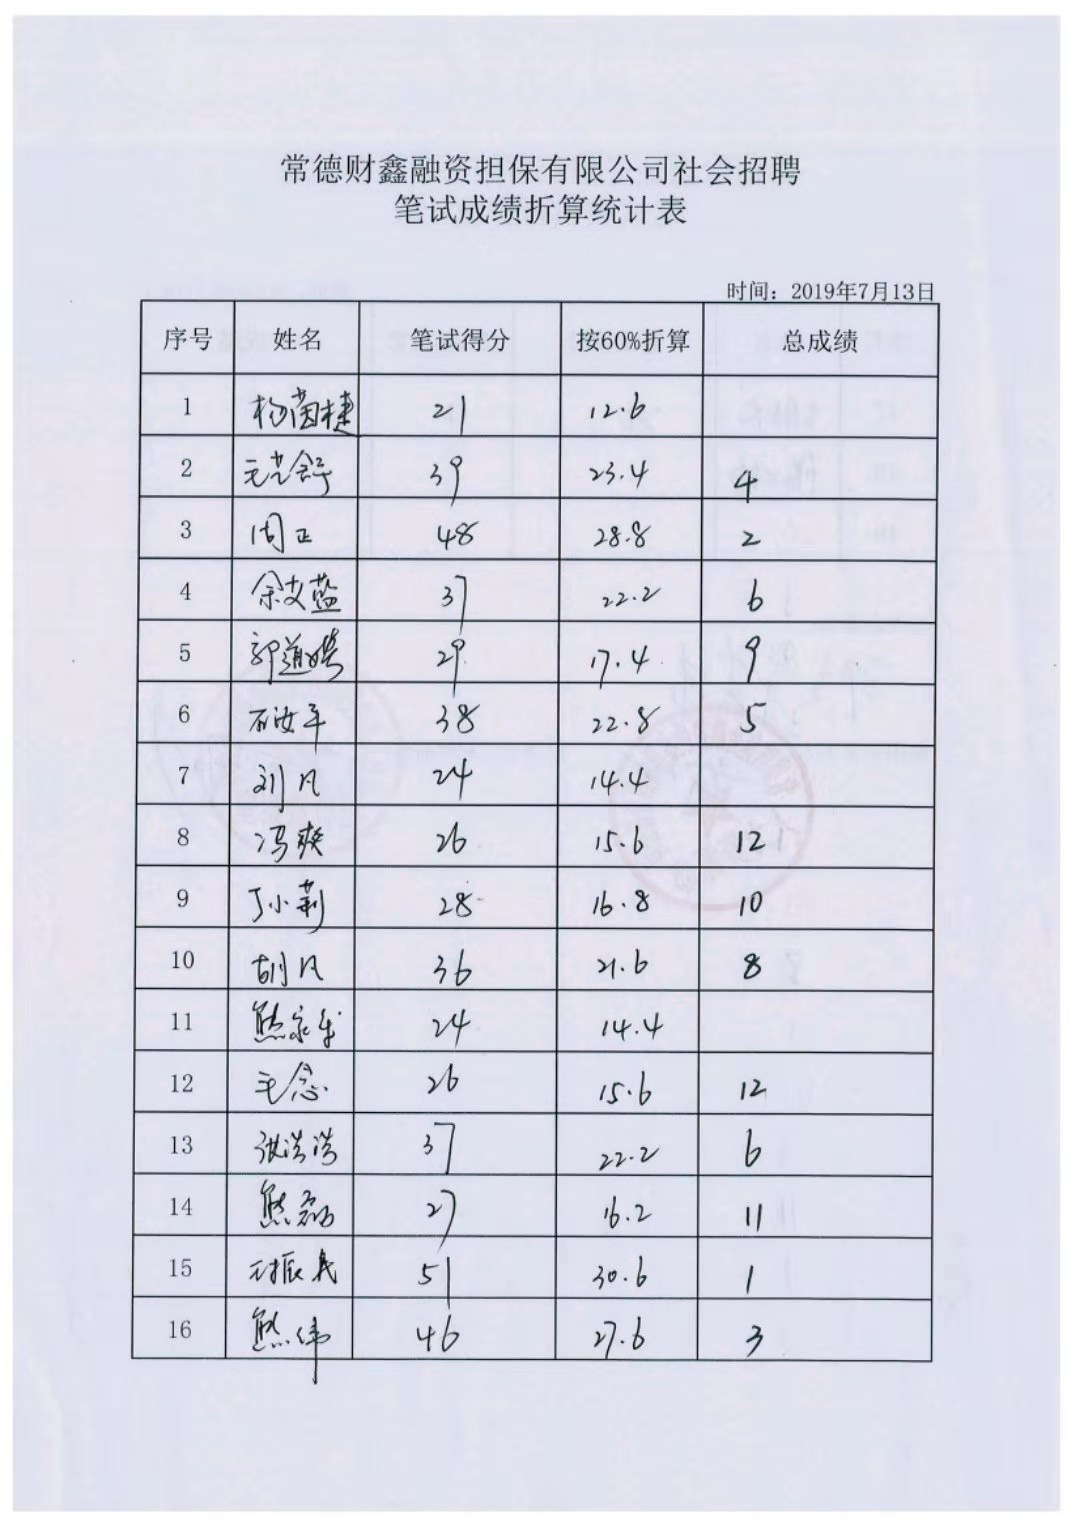 常德财鑫融资担保有限公司社会招聘
笔试成绩折算统计表
时间：2019年7月13日
序号 姓名 笔试得分 按60%折算 总成绩
1 杨茵捷 21 12.6
2 39 23.4 4
3 周正 48 28.8 2
4 余文蓝 37 22.2 6
5 29 17.4 9
6 石汝平 38 22.8 5
7 刘凡 24 14.4
8 冯爽 26 15.6 12
9 丁小莉 28 16.8 10
10 胡凡 36 21.6 8
11 24 14.4
12 毛念 26 15.6 12
13 张浩浩 37 22.2 6
14 熊磊 27 16.2 11
15 51 30.6 1
16 熊伟 46 27.6 3